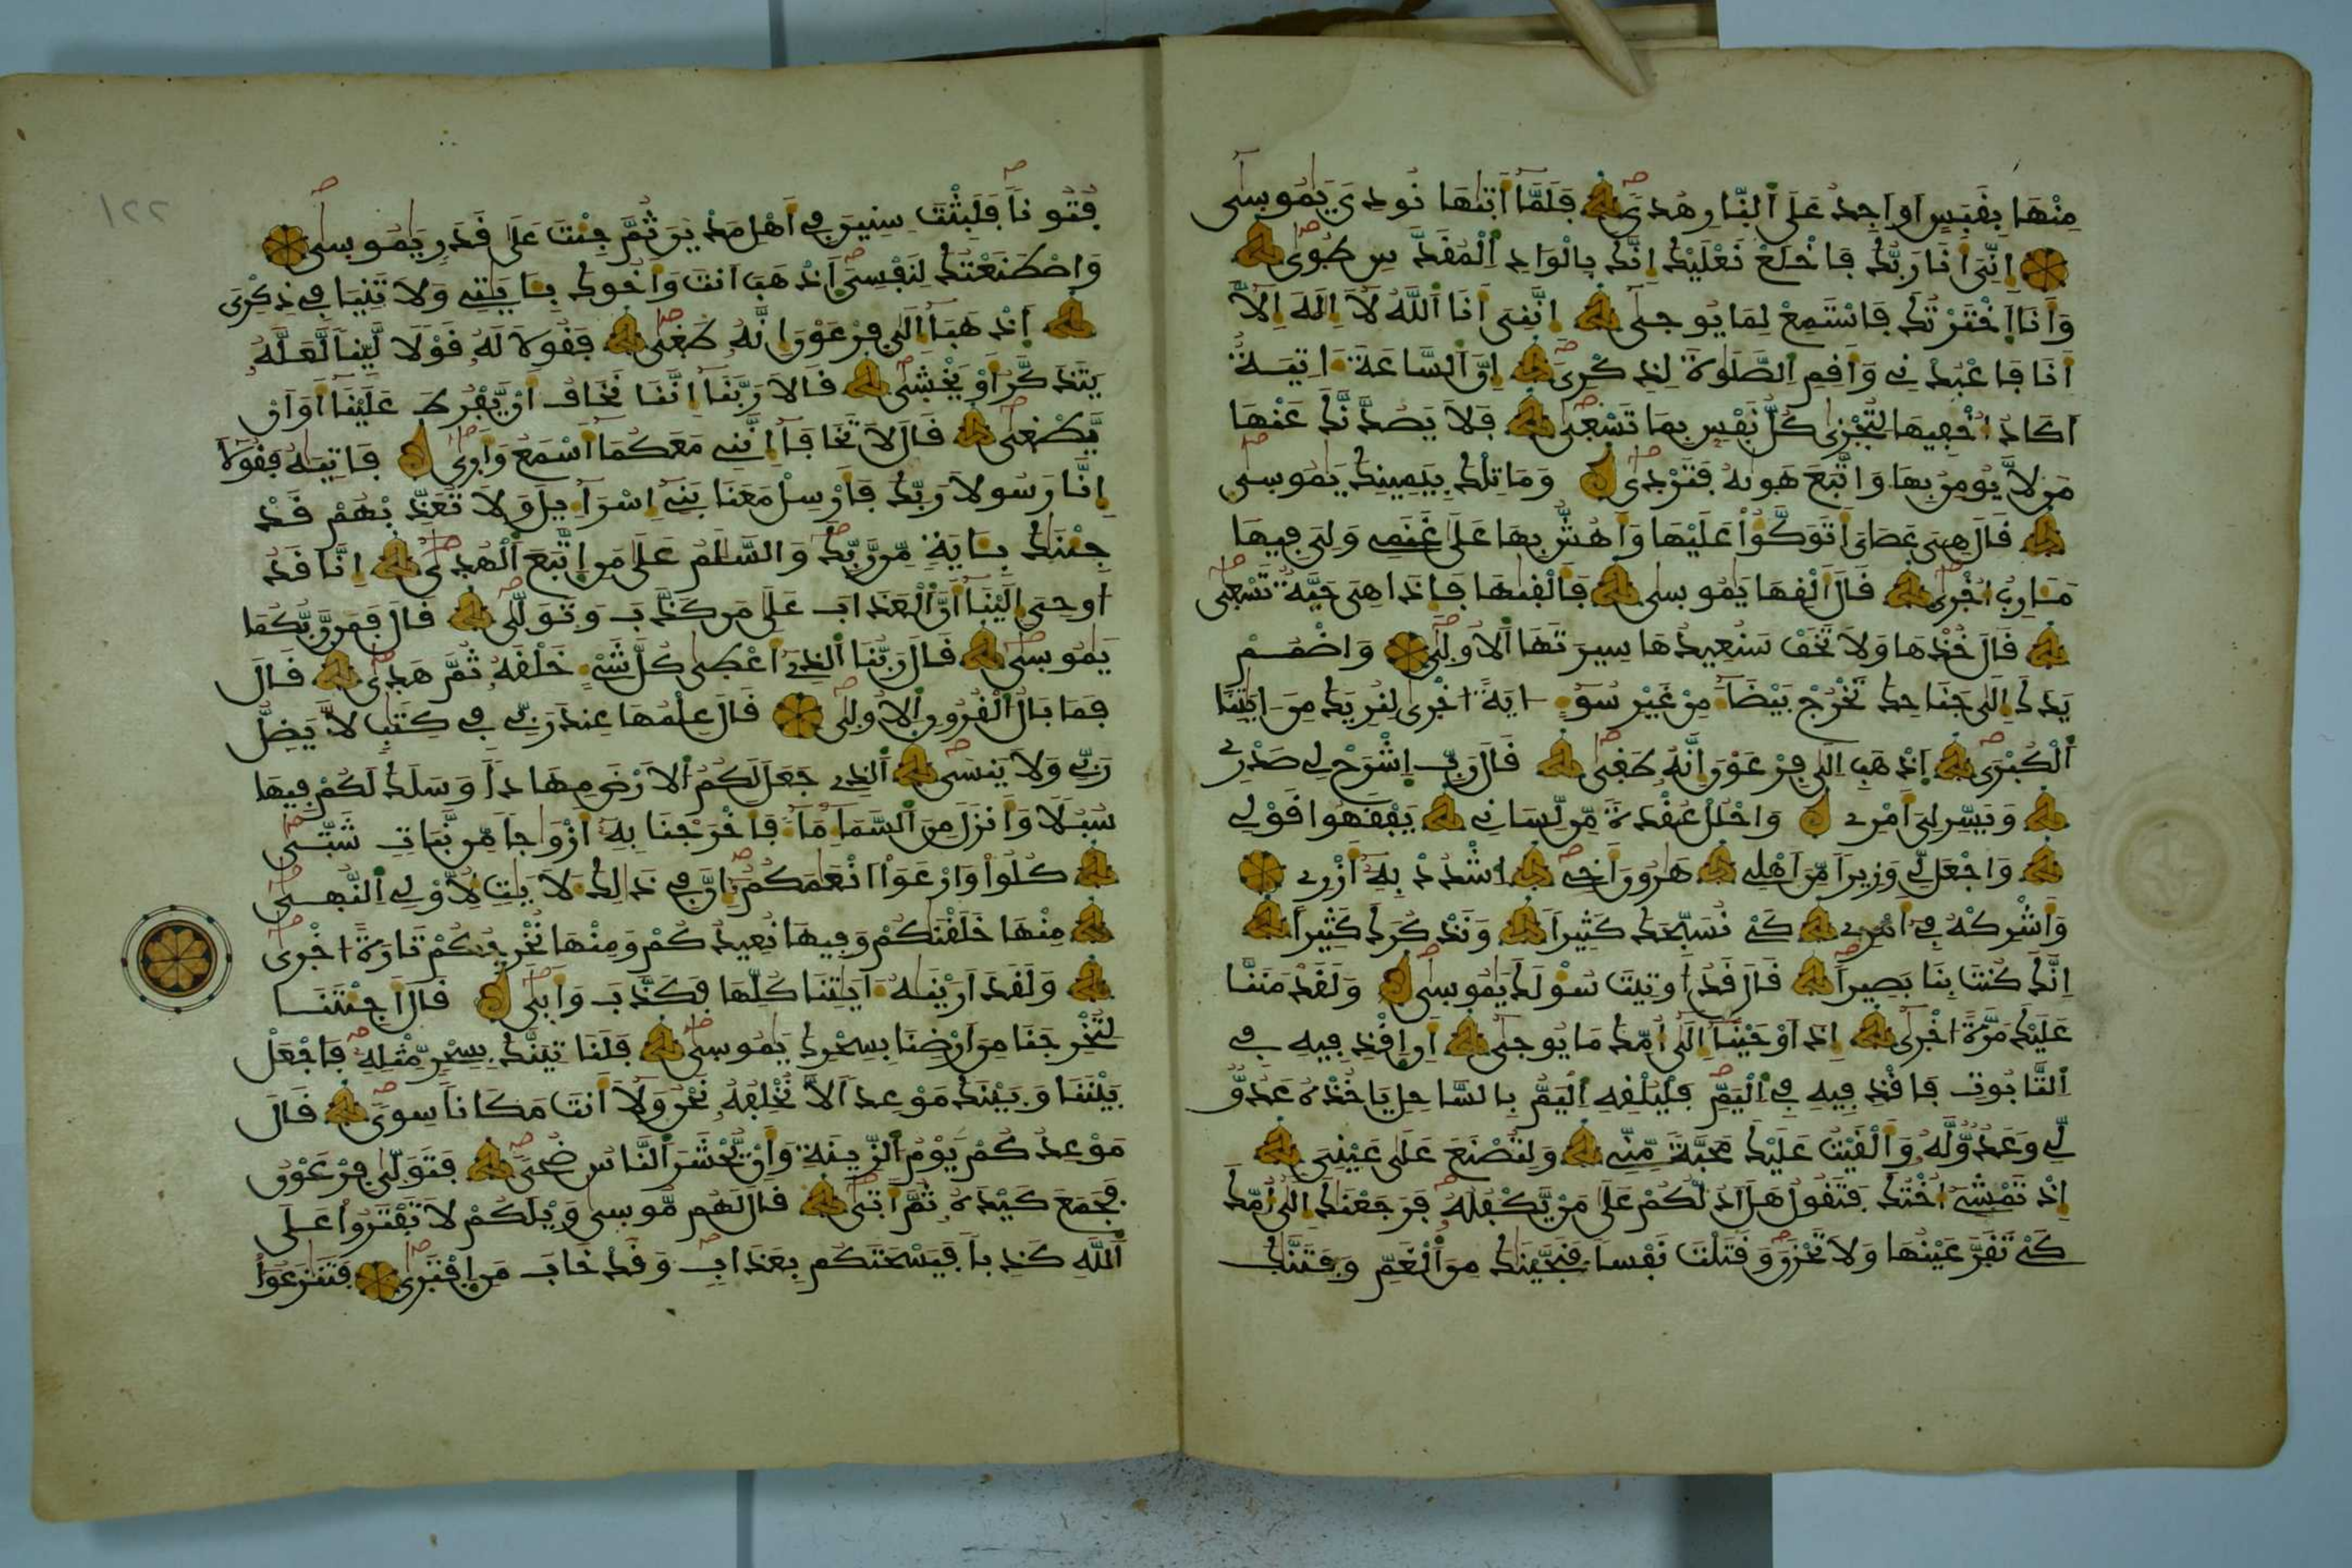 مِنْهَا بِقَبَسٍ اَوَ اَجِدُ عَلَى اَلنّ۪ارِ هُدىَۖ فَلَمَّآ أَت۪يٰهَا نُودِىَ يَٰمُوس۪ىٰٓ
إِنِّىَ أَنَا رَبُّكَ فَاخْلَعْ نَعْلَيْكَ إِنَّكَ بِالْوَادِ اِلْمُقَدَّسِ طُوىٰۖ
وَأَنَا اَخْتَرْتُكَ فَاسْتَمِعْ لِمَا يُوح۪ىٰٓ إِنَّنِىَ أَنَا اَللَّهُ لَآ إِلَٰهَ إِلَّآ
أَنَا فَاعْبُدْنِے وَأَقِمِ اِلصَّلَوٰةَ لِذِكْرِىَۖ إِنَّ اَلسَّاعَةَ ءَاتِيَةٌ
أَكَادُ أُخْفِيهَا لِتُجْز۪ىٰ كُلُّ نَفْسٍ بِمَا تَسْع۪ىٰۖ فَلَا يَصُدَّنَّكَ عَنْهَا
مَن لَّا يُومِنُ بِهَا وَاتَّبَعَ هَو۪يٰهُ فَتَرْد۪ىٰۖ وَمَا تِلْكَ بِيَمِينِكَ يَٰمُوس۪ىٰۖ
قَالَ هِىَ عَصَاىَ أَتَوَكَّؤُاْ عَلَيْهَا وَأَهُشُّ بِهَا عَلَىٰ غَنَمِے وَلِىَ فِيهَا
مَـَٔارِبُ أُخْر۪ىٰۖ قَالَ أَلْقِهَا يَٰمُوس۪ىٰ فَأَلْق۪يٰهَا فَإِذَا هِىَ حَيَّةٌ تَسْع۪ىٰۖ
قَالَ خُذْهَا وَلَا تَخَفْ سَنُعِيدُهَا سِيرَتَهَا اَلُاول۪ىٰۖ وَاضْمُمْ
يَدَكَ إِلَىٰ جَنَاحِكَ تَخْرُجْ بَيْضَآءَ مِنْ غَيْرِ سُوٓءٍ ءَايَةً اُخْر۪ىٰ لِنُرِيَكَ مِنَ ـاَيَٰتِنَا
اَلْكُبْرَىۖ اَذْهَبِ اِلَىٰ فِرْعَوْنَ إِنَّهُۥ طَغ۪ىٰۖ قَالَ رَبِّ اِشْرَحْ لِے صَدْرِے
وَيَسِّرْ لِىَ أَمْرِے وَاحْلُلْ عُقْدَةً مِّن لِّسَانِے يَفْقَهُواْ قَوْلِے
وَاجْعَل لِّے وَزِيراً مِّنَ اَهْلِے هَٰرُونَ أَخِےۖ اِشْدُدْ بِهِۦٓ أَزْرِے
وَأَشْرِكْهُ فِےٓ أَمْرِے كَےْ نُسَبِّحَكَ كَثِيراً وَنَذْكُرَكَ كَثِيراً
إِنَّكَ كُنتَ بِنَا بَصِيراًۖ قَالَ قَدُ اُوتِيتَ سُؤْلَكَ يَٰمُوس۪ىٰۖ وَلَقَدْ مَنَنَّا
عَلَيْكَ مَرَّةً اُخْر۪ىٰٓ إِذَ اَوْحَيْنَآ إِلَىٰٓ أُمِّكَ مَا يُوح۪ىٰٓ أَنِ اِقْذِفِيهِ فِے
اِلتَّابُوتِ فَاقْذِفِيهِ فِے اِلْيَمِّۖ فَلْيُلْقِهِ اِلْيَمُّ بِالسَّاحِلِ يَاخُذْهُ عَدُوٌّ
لِّے وَعَدُوٌّ لَّهُۥ وَأَلْقَيْتُ عَلَيْكَ مَحَبَّةً مِّنِّے وَلِتُصْنَعَ عَلَىٰ عَيْنِىَ
إِذْ تَمْشِےٓ أُخْتُكَ فَتَقُولُ هَلَ اَدُلُّكُمْ عَلَىٰ مَنْ يَّكْفُلُهُۥۖ فَرَجَعْنَٰكَ إِلَىٰٓ أُمِّكَ
كَےْ تَقَرَّ عَيْنُهَا وَلَا تَحْزَنَۖ وَقَتَلْتَ نَفْساً فَنَجَّيْنَٰكَ مِنَ اَلْغَمِّ وَفَتَنَّٰكَ
١٢٢
فُتُوناًۖ فَلَبِثْتَ سِنِينَ فِےٓ أَهْلِ مَدْيَنَ ثُمَّ جِئْتَ عَلَىٰ قَدَرٍ يَٰمُوس۪ىٰۖ
وَاصْطَنَعْتُكَ لِنَفْسِىَۖ اَذْهَبَ اَنتَ وَأَخُوكَ بِـَٔايَٰتِے وَلَا تَنِيَا فِے ذِكْرِىَ
اَذْهَبَآ إِلَىٰ فِرْعَوْنَ إِنَّهُۥ طَغ۪ىٰۖ فَقُولَا لَهُۥ قَوْلاً لَّيِّناً لَّعَلَّهُۥ
يَتَذَكَّرُ أَوْ يَخْش۪ىٰۖ قَالَا رَبَّنَآ إِنَّنَا نَخَافُ أَنْ يَّفْرُطَ عَلَيْنَآ أَوَ اَنْ
يَّطْغ۪ىٰۖ قَالَ لَا تَخَافَآ إِنَّنِے مَعَكُمَآ أَسْمَعُ وَأَر۪ىٰۖ فَاتِيَٰهُ فَقُولَآ
إِنَّا رَسُولَا رَبِّكَ فَأَرْسِلْ مَعَنَا بَنِےٓ إِسْرَآءِيلَ وَلَا تُعَذِّبْهُمْ قَدْ
جِئْنَٰكَ بِـَٔايَةٍ مِّن رَّبِّكَۖ وَالسَّلَٰمُ عَلَىٰ مَنِ اِتَّبَعَ اَلْهُد۪ىٰٓۖ إِنَّا قَدُ
اوحِىَ إِلَيْنَآ أَنَّ اَلْعَذَابَ عَلَىٰ مَن كَذَّبَ وَتَوَلّ۪ىٰۖ قَالَ فَمَن رَّبُّكُمَا
يَٰمُوس۪ىٰۖ قَالَ رَبُّنَا اَلذِےٓ أَعْط۪ىٰ كُلَّ شَےْءٍ خَلْقَهُۥ ثُمَّ هَد۪ىٰۖ قَالَ
فَمَا بَالُ اَلْقُرُونِ اِلُاول۪ىٰۖ قَالَ عِلْمُهَا عِندَ رَبِّے فِے كِتَٰبٍ لَّا يَضِلُّ
رَبِّے وَلَا يَنسَىۖ اَلذِے جَعَلَ لَكُمُ اُلَارْضَ مِهَٰداً وَسَلَكَ لَكُمْ فِيهَا
سُبُلاً وَأَنزَلَ مِنَ اَلسَّمَآءِ مَآءً فَأَخْرَجْنَا بِهِۦٓ أَزْوَٰجاً مِّن نَّبَاتٍ شَتّ۪ىٰۖ
كُلُواْ وَارْعَوَاْ اَنْعَٰمَكُمُۥٓۖ إِنَّ فِے ذَٰلِكَ ءَلَايَٰتٍ لُّاوْلِے اِلنُّه۪ىٰۖ
مِنْهَا خَلَقْنَٰكُمْ وَفِيهَا نُعِيدُكُمْ وَمِنْهَا نُخْرِجُكُمْ تَارَةً اُخْر۪ىٰۖ
وَلَقَدَ اَرَيْنَٰهُ ءَايَٰتِنَا كُلَّهَا فَكَذَّبَ وَأَب۪ىٰۖ قَالَ أَجِئْتَنَا
لِتُخْرِجَنَا مِنَ اَرْضِنَا بِسِحْرِكَ يَٰمُوس۪ىٰۖ فَلَنَاتِيَنَّكَ بِسِحْرٍ مِّثْلِهِۦۖ فَاجْعَلْ
بَيْنَنَا وَبَيْنَكَ مَوْعِداً لَّا نُخْلِفُهُۥ نَحْنُ وَلَآ أَنتَ مَكَاناً سِوىَۖ قَالَ
مَوْعِدُكُمْ يَوْمُ اُلزِّينَةِ وَأَنْ يُّحْشَرَ اَلنَّاسُ ضُحىَۖ فَتَوَلّ۪ىٰ فِرْعَوْنُ
فَجَمَعَ كَيْدَهُۥ ثُمَّ أَت۪ىٰۖ قَالَ لَهُم مُّوس۪ىٰ وَيْلَكُمْ لَا تَفْتَرُواْ عَلَى
اَللَّهِ كَذِباً فَيَسْحَتَكُم بِعَذَابٍۖ وَقَدْ خَابَ مَنِ اِفْتَر۪ىٰۖ فَتَنَٰزَعُوٓاْ